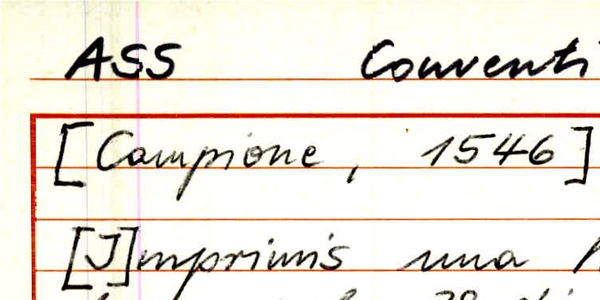 ASS Conventi
[Campione, 1546]
[J]mprimis una